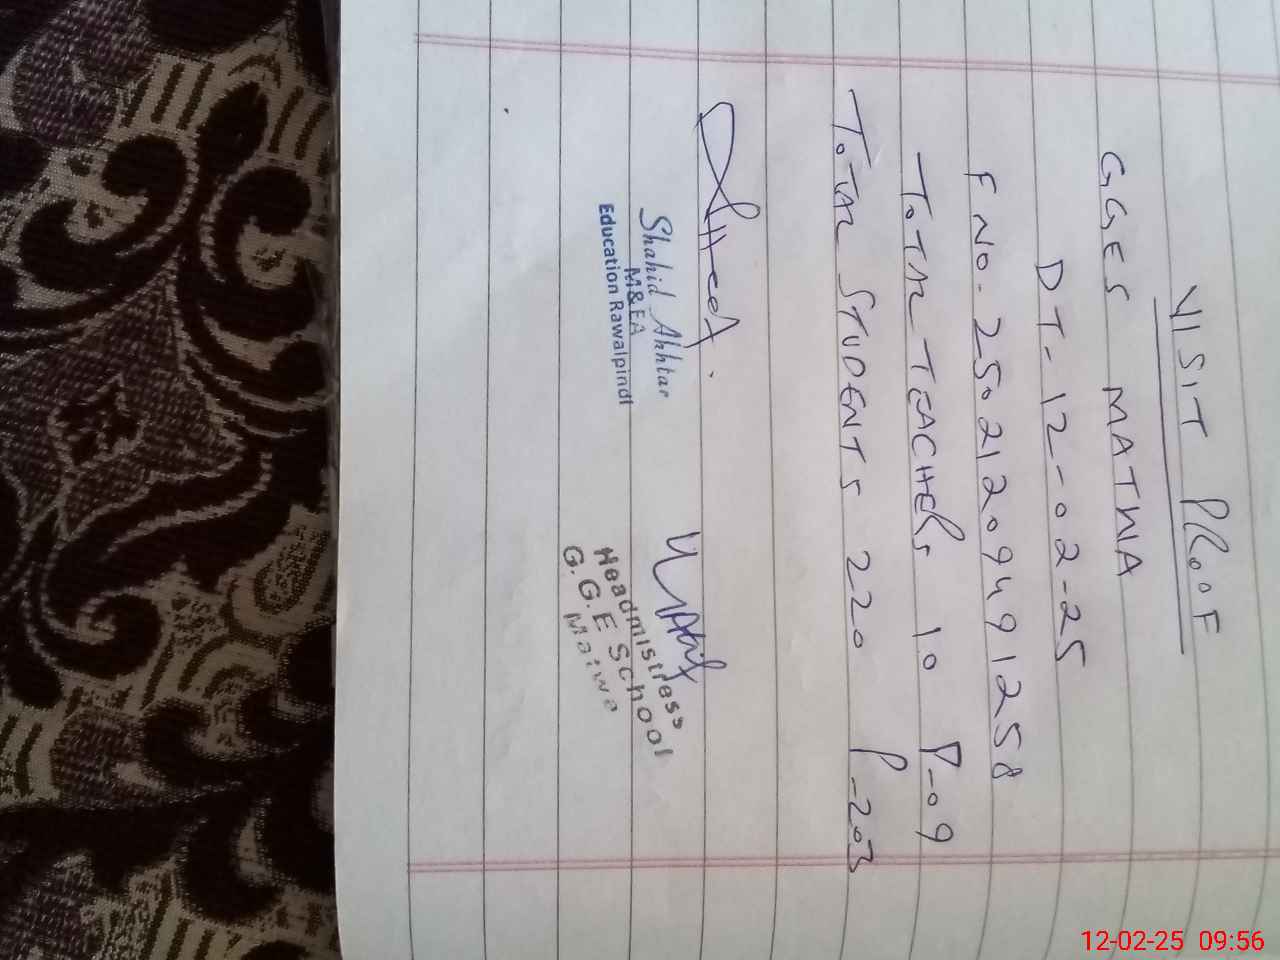 VISIT PROOF
GGES MATWA
DT-12-02-25
F NO. 25021209491258
TOTAL TEACHERS 10 P-09
TOTAL STUDENTS 220 P-203
Shahid Akhtar
M&EA
Education Rawalpindi
Headmistress
G.G.E School
Maiwa
12-02-25 09:56